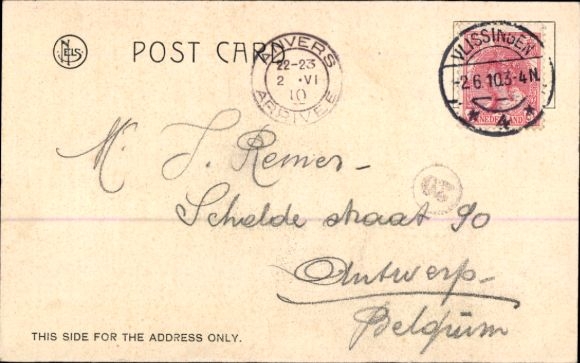 NELS
POST CARD
ANVERS
22-23
2 . VI
10
ARRIVÉE
VLISSINGEN
-2.6.10.3-4N.
* 4 *
NEDERLAND
M. J. Remer-
Schelde straat 90
Antwerp-
Belgium
THIS SIDE FOR THE ADDRESS ONLY.